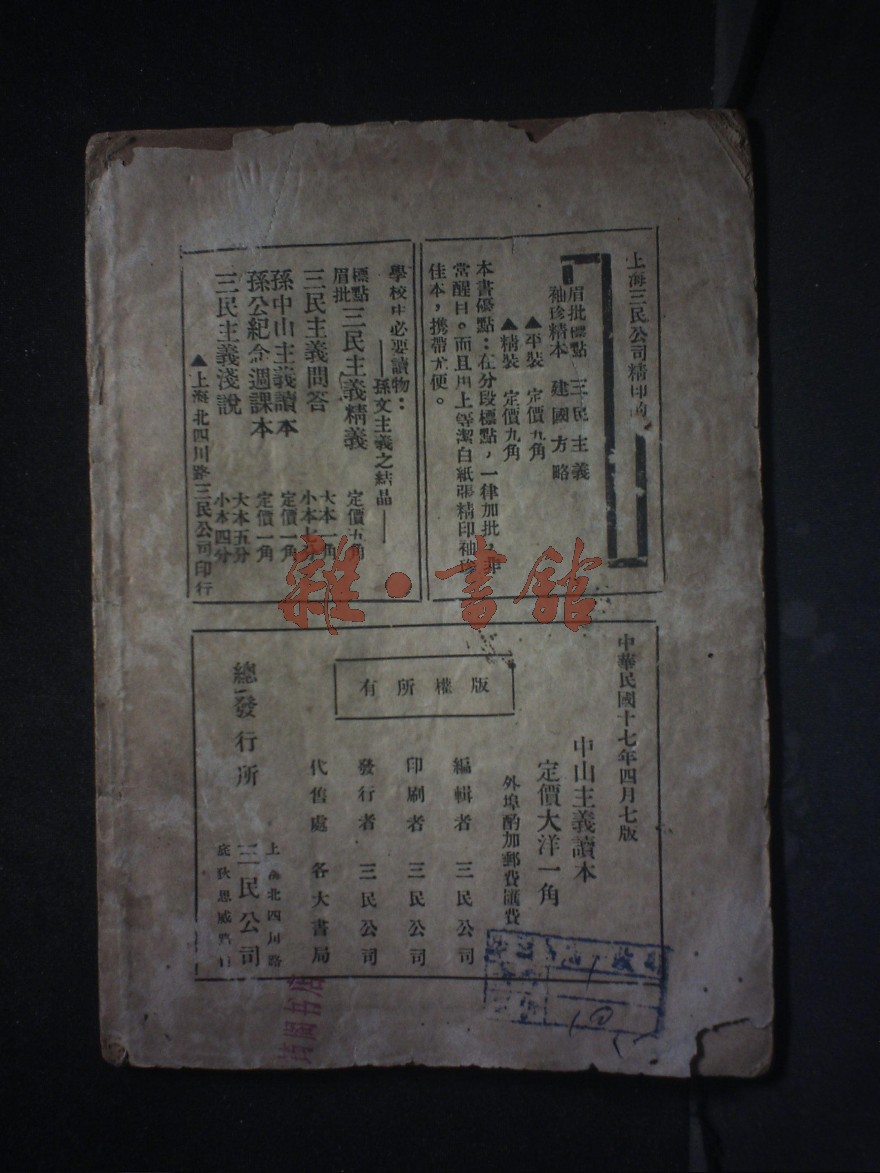 上海三民公司精印的
眉批標點 三民主義
袖珍精本 建國方略
▲平裝 定價五角
▲精裝 定價九角
本書優點：在分段標點，一律加批，非
常醒目。而且用上等潔白紙張精印袖珍
佳本，携帶尤便。
學校中必要讀物：
——孫文主義之結晶——
標點
眉批 三民主義精義 定價五角
三民主義問答 大本一角
小本七分
孫中山主義讀本 定價一角
孫公紀念週課本 定價一角
三民主義淺說 大本五分
小本四分
▲上海北四川路三民公司印行
中華民國十七年四月七版
中山主義讀本
定價大洋一角
外埠酌加郵費匯費
版權所有
編輯者 三民公司
印刷者 三民公司
發行者 三民公司
代售處 各大書局
總發行所
上海北四川路
三民公司
底狄思威路口
雜·書館